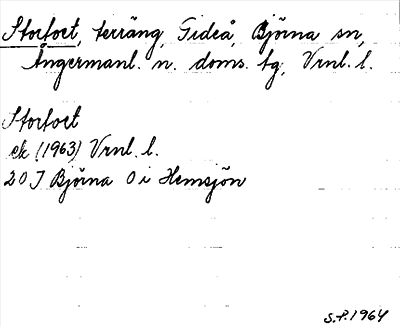 Storfort, terräng, Gideå, Björna sn,
Ångermanl. n. doms. tg, Vrnl. l.
Storfort
ek (1963) Vrnl. l.
20 J Björna O i Hemsjön
S.P. 1964